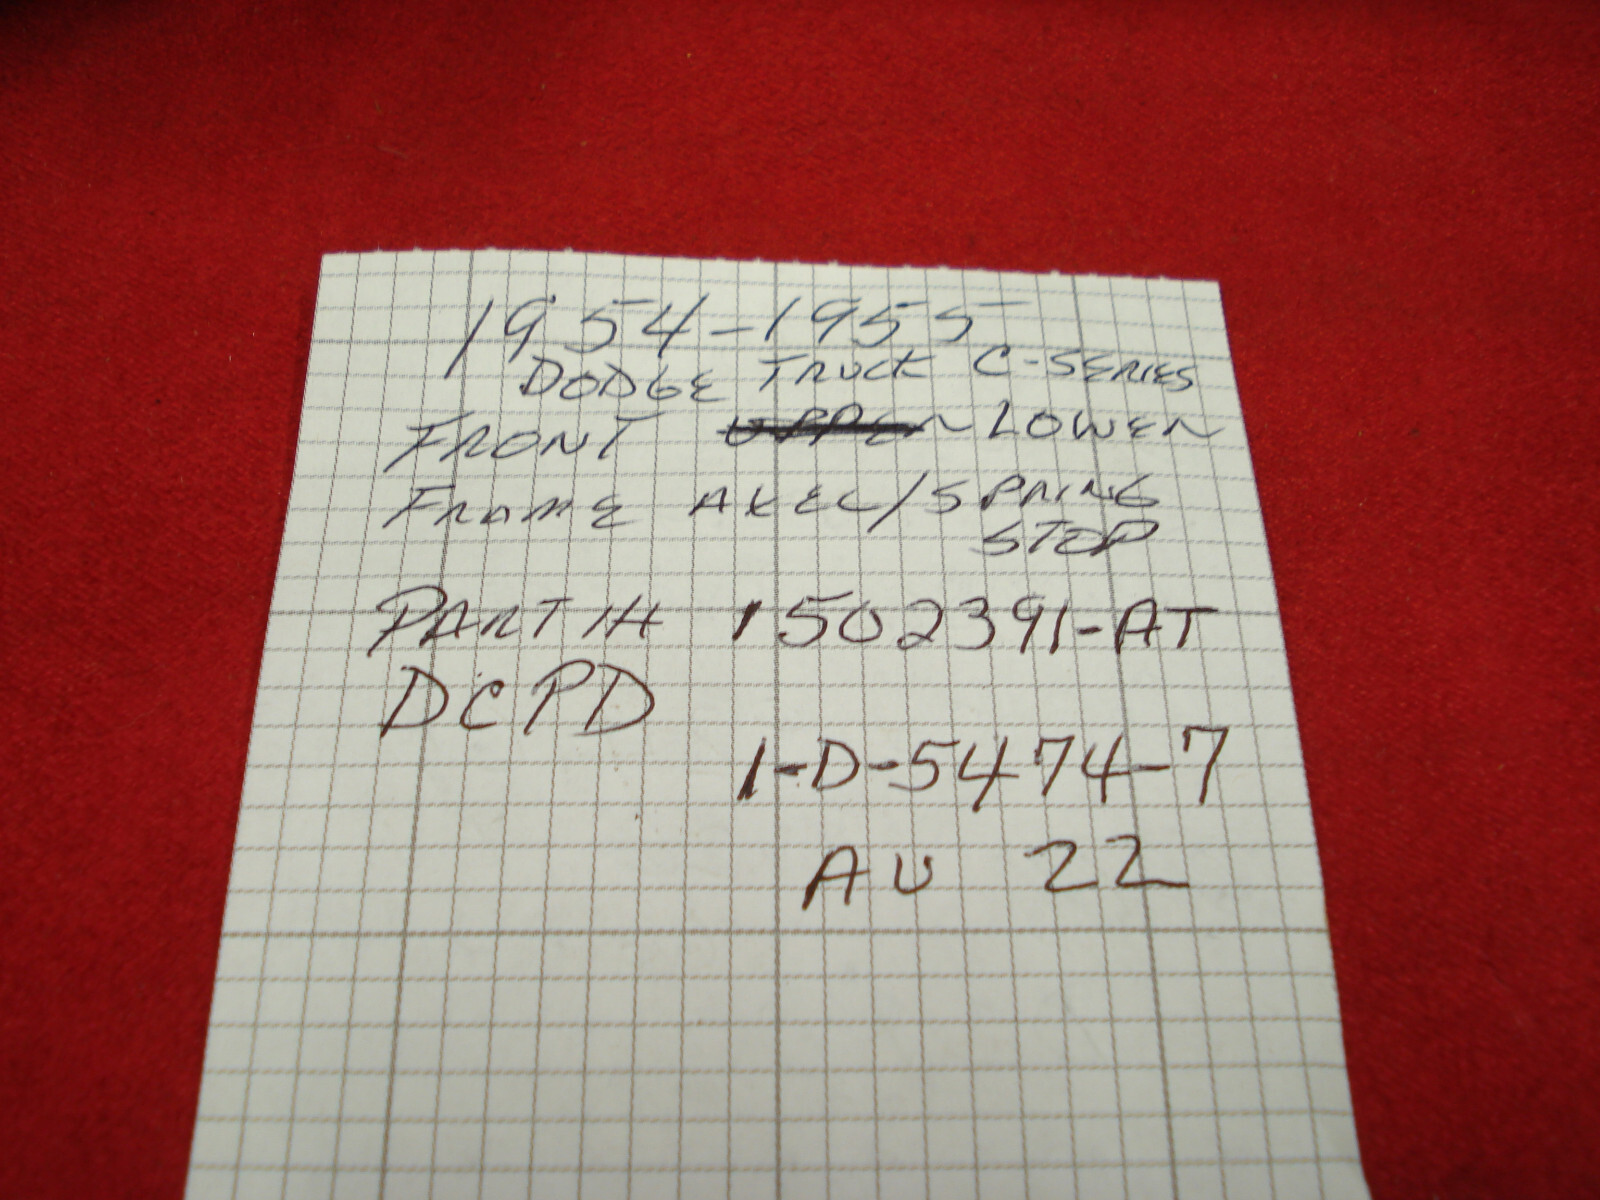 1954-1955
DODGE TRUCK C-SERIES
FRONT UPPER LOWER
FRAME AXEL/SPRING
STOP
PART # 1502391-AT
DCPD
1-D-5474-7
AU 22